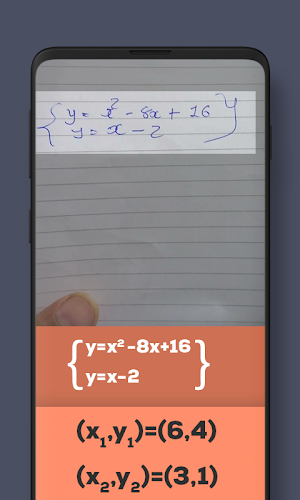 {y = x² - 8x + 16}
{y = x - 2}
{y=x²-8x+16}
{y=x-2}
(x₁,y₁)=(6,4)
(x₂,y₂)=(3,1)